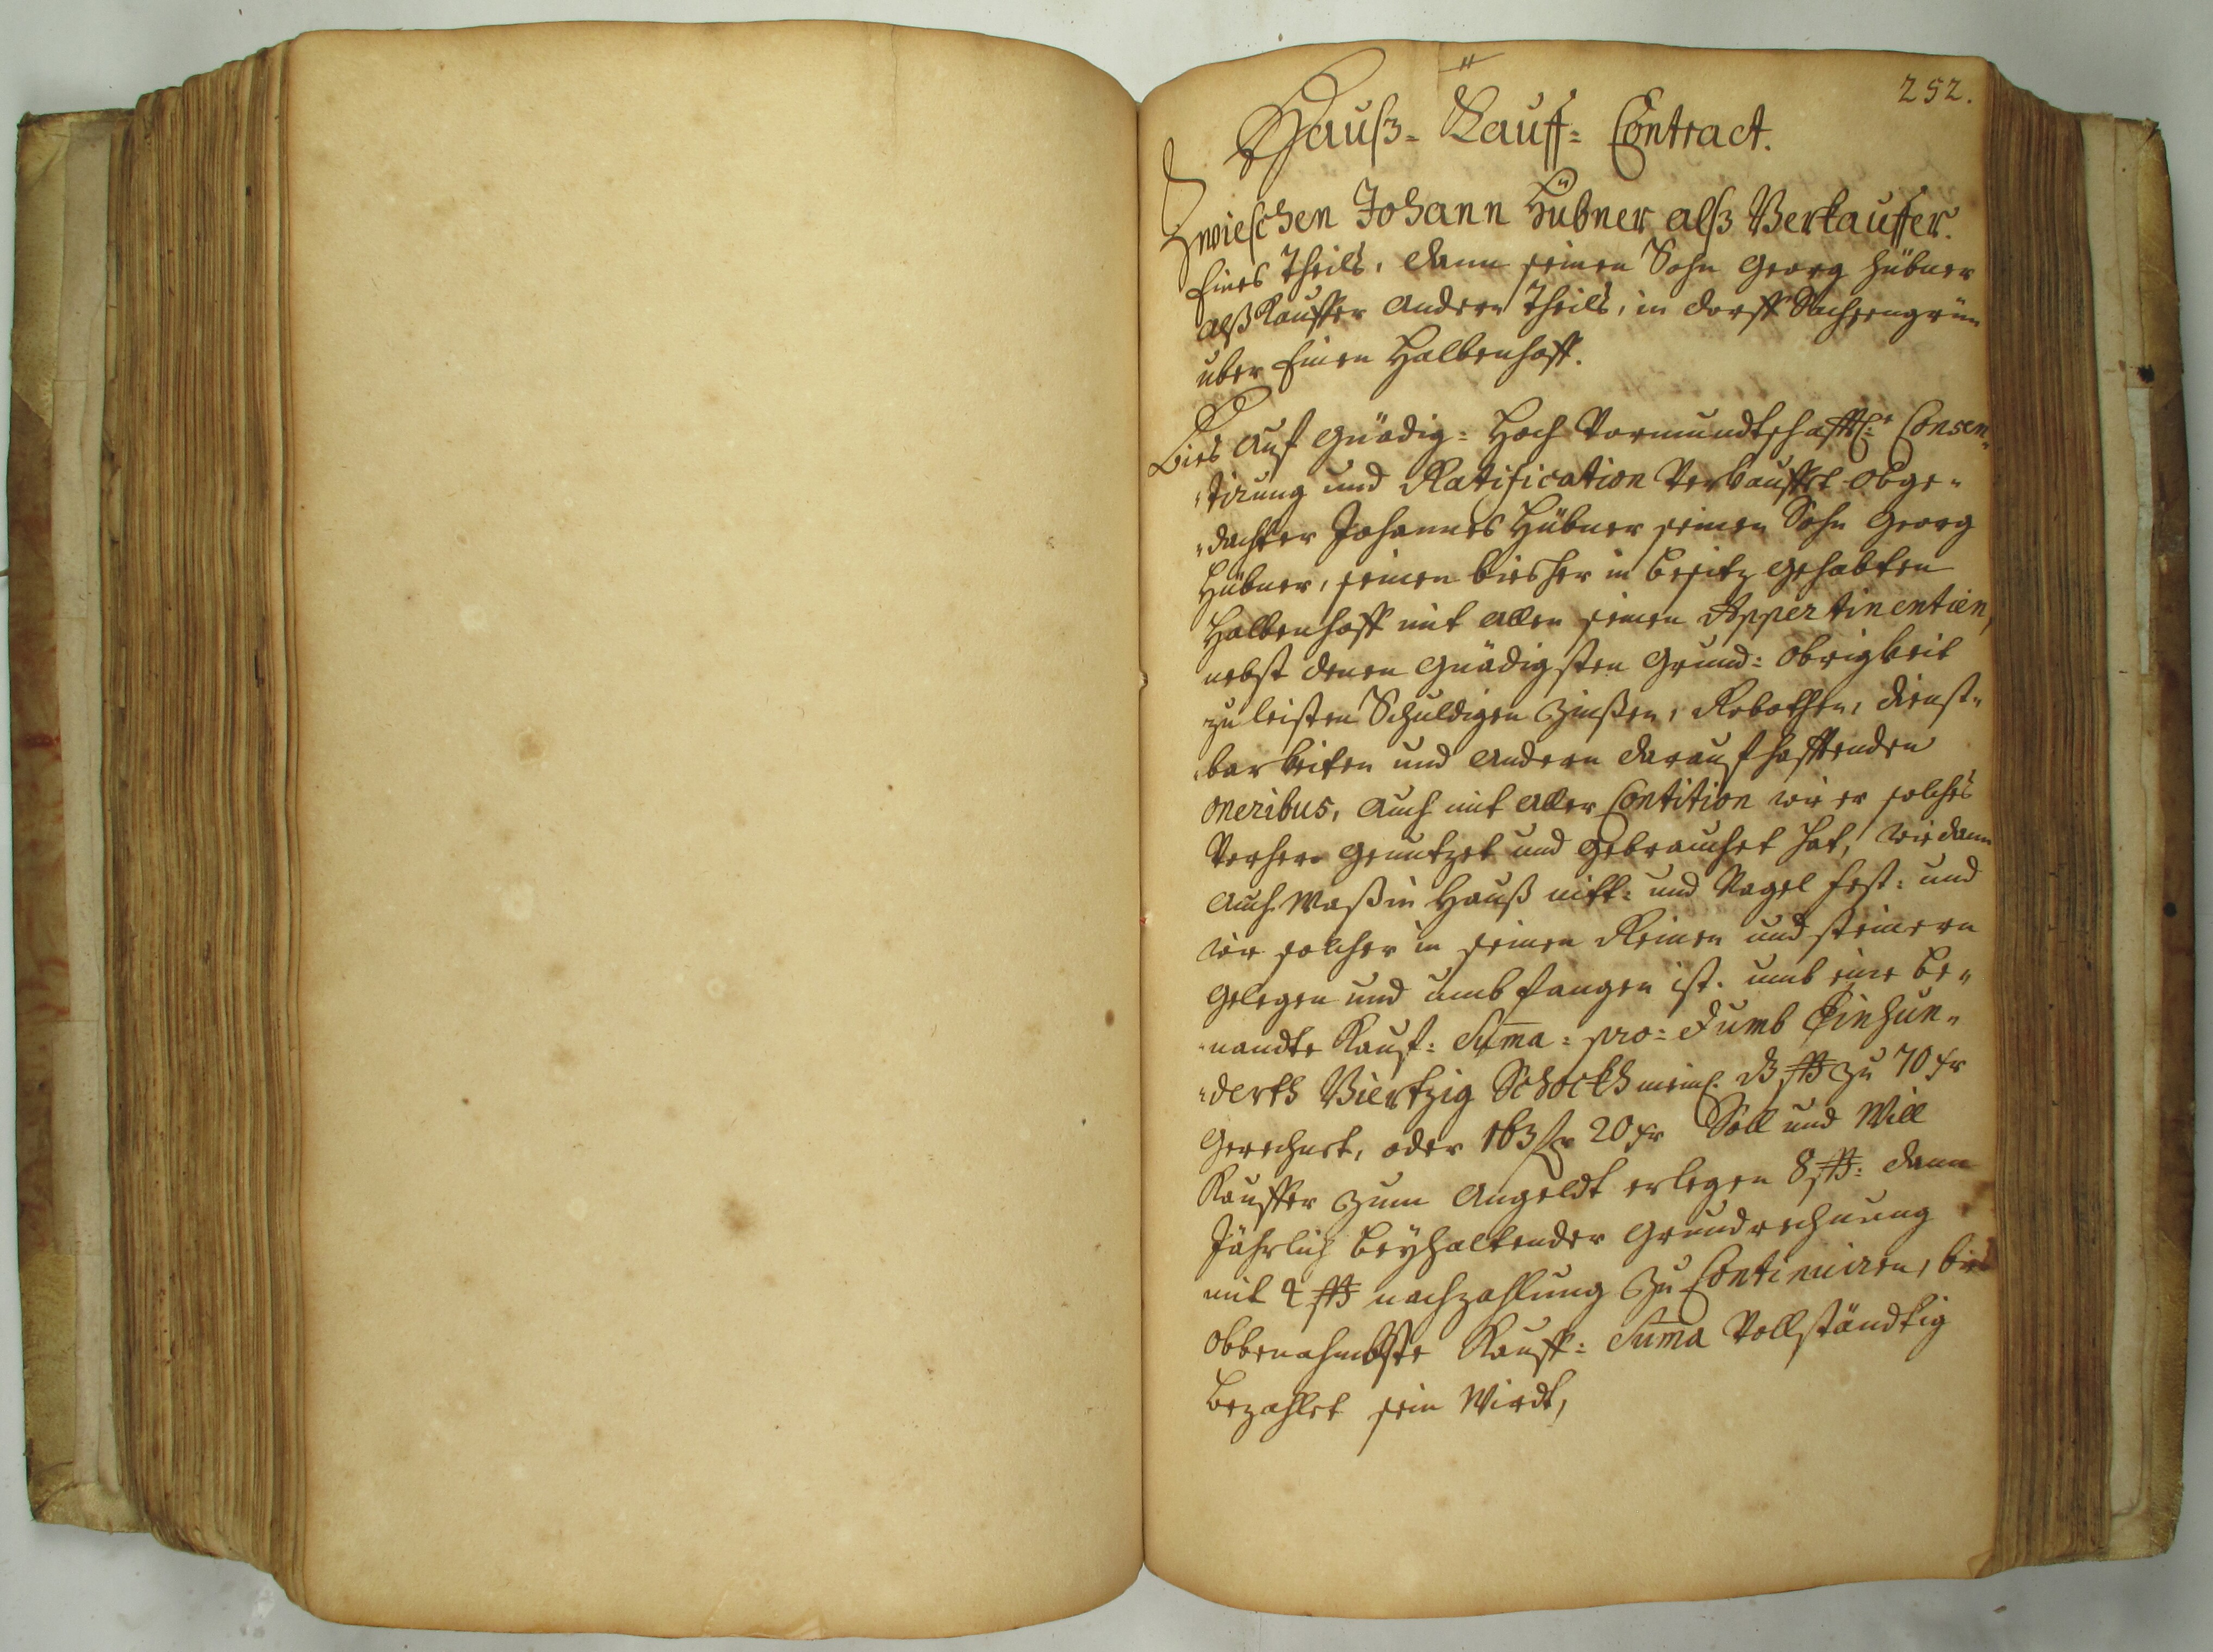 252.
Hauß- Kauff- Contract.
Zwieschen Johann Hübner alß Verkauffer.
Eines Theils, dann seinen Sohn Georg Hübner
alß Kauffer Andern Theils, in Dorff Sachsengrün
über Einen Halbenhoff.
Dies auf Gnädig= Hoch Vormundtschafftl:r Consen„
„tirung und Ratification Verkauffet obge„
„dachter Johannes Hübner seinen Sohn Georg
Hübner, seinen bießher in besitz gehabten
Halbenhoff mit allen seinen Appertinentien,
nebst denen Gnädigsten Grund= Obrigkeit
zu leisten Schuldigen Zinßen, Robothen, dienst„
„barkeiten und andern darauf hafftenden
oneribus, auch mit aller Contition wie er solches
Vorhero genutzet und gebrauchet hat, wie dann
auch waß in Hauß nitt= und Nagel fest= und
wie solcher in seinen Reinen und steinern
gelegen und umbfangen ist. umb eine be„
„nandte Kauf= Suma= pro= & umb Einhun„
„derth Viertzig Schockh meinl: d ß zu 70 xr
gerechnet, oder 163 fl 20 xr Soll und Will
Kauffer zum Angeldt erlegen 8 ß: dann
Jährlich beyhaltender Grundrechnung
mit 4 ß nachzahlung zu Continuiren, bis
obbenahmbste Kauff= Suma Vollständtig
bezahlet sein Wirdt,